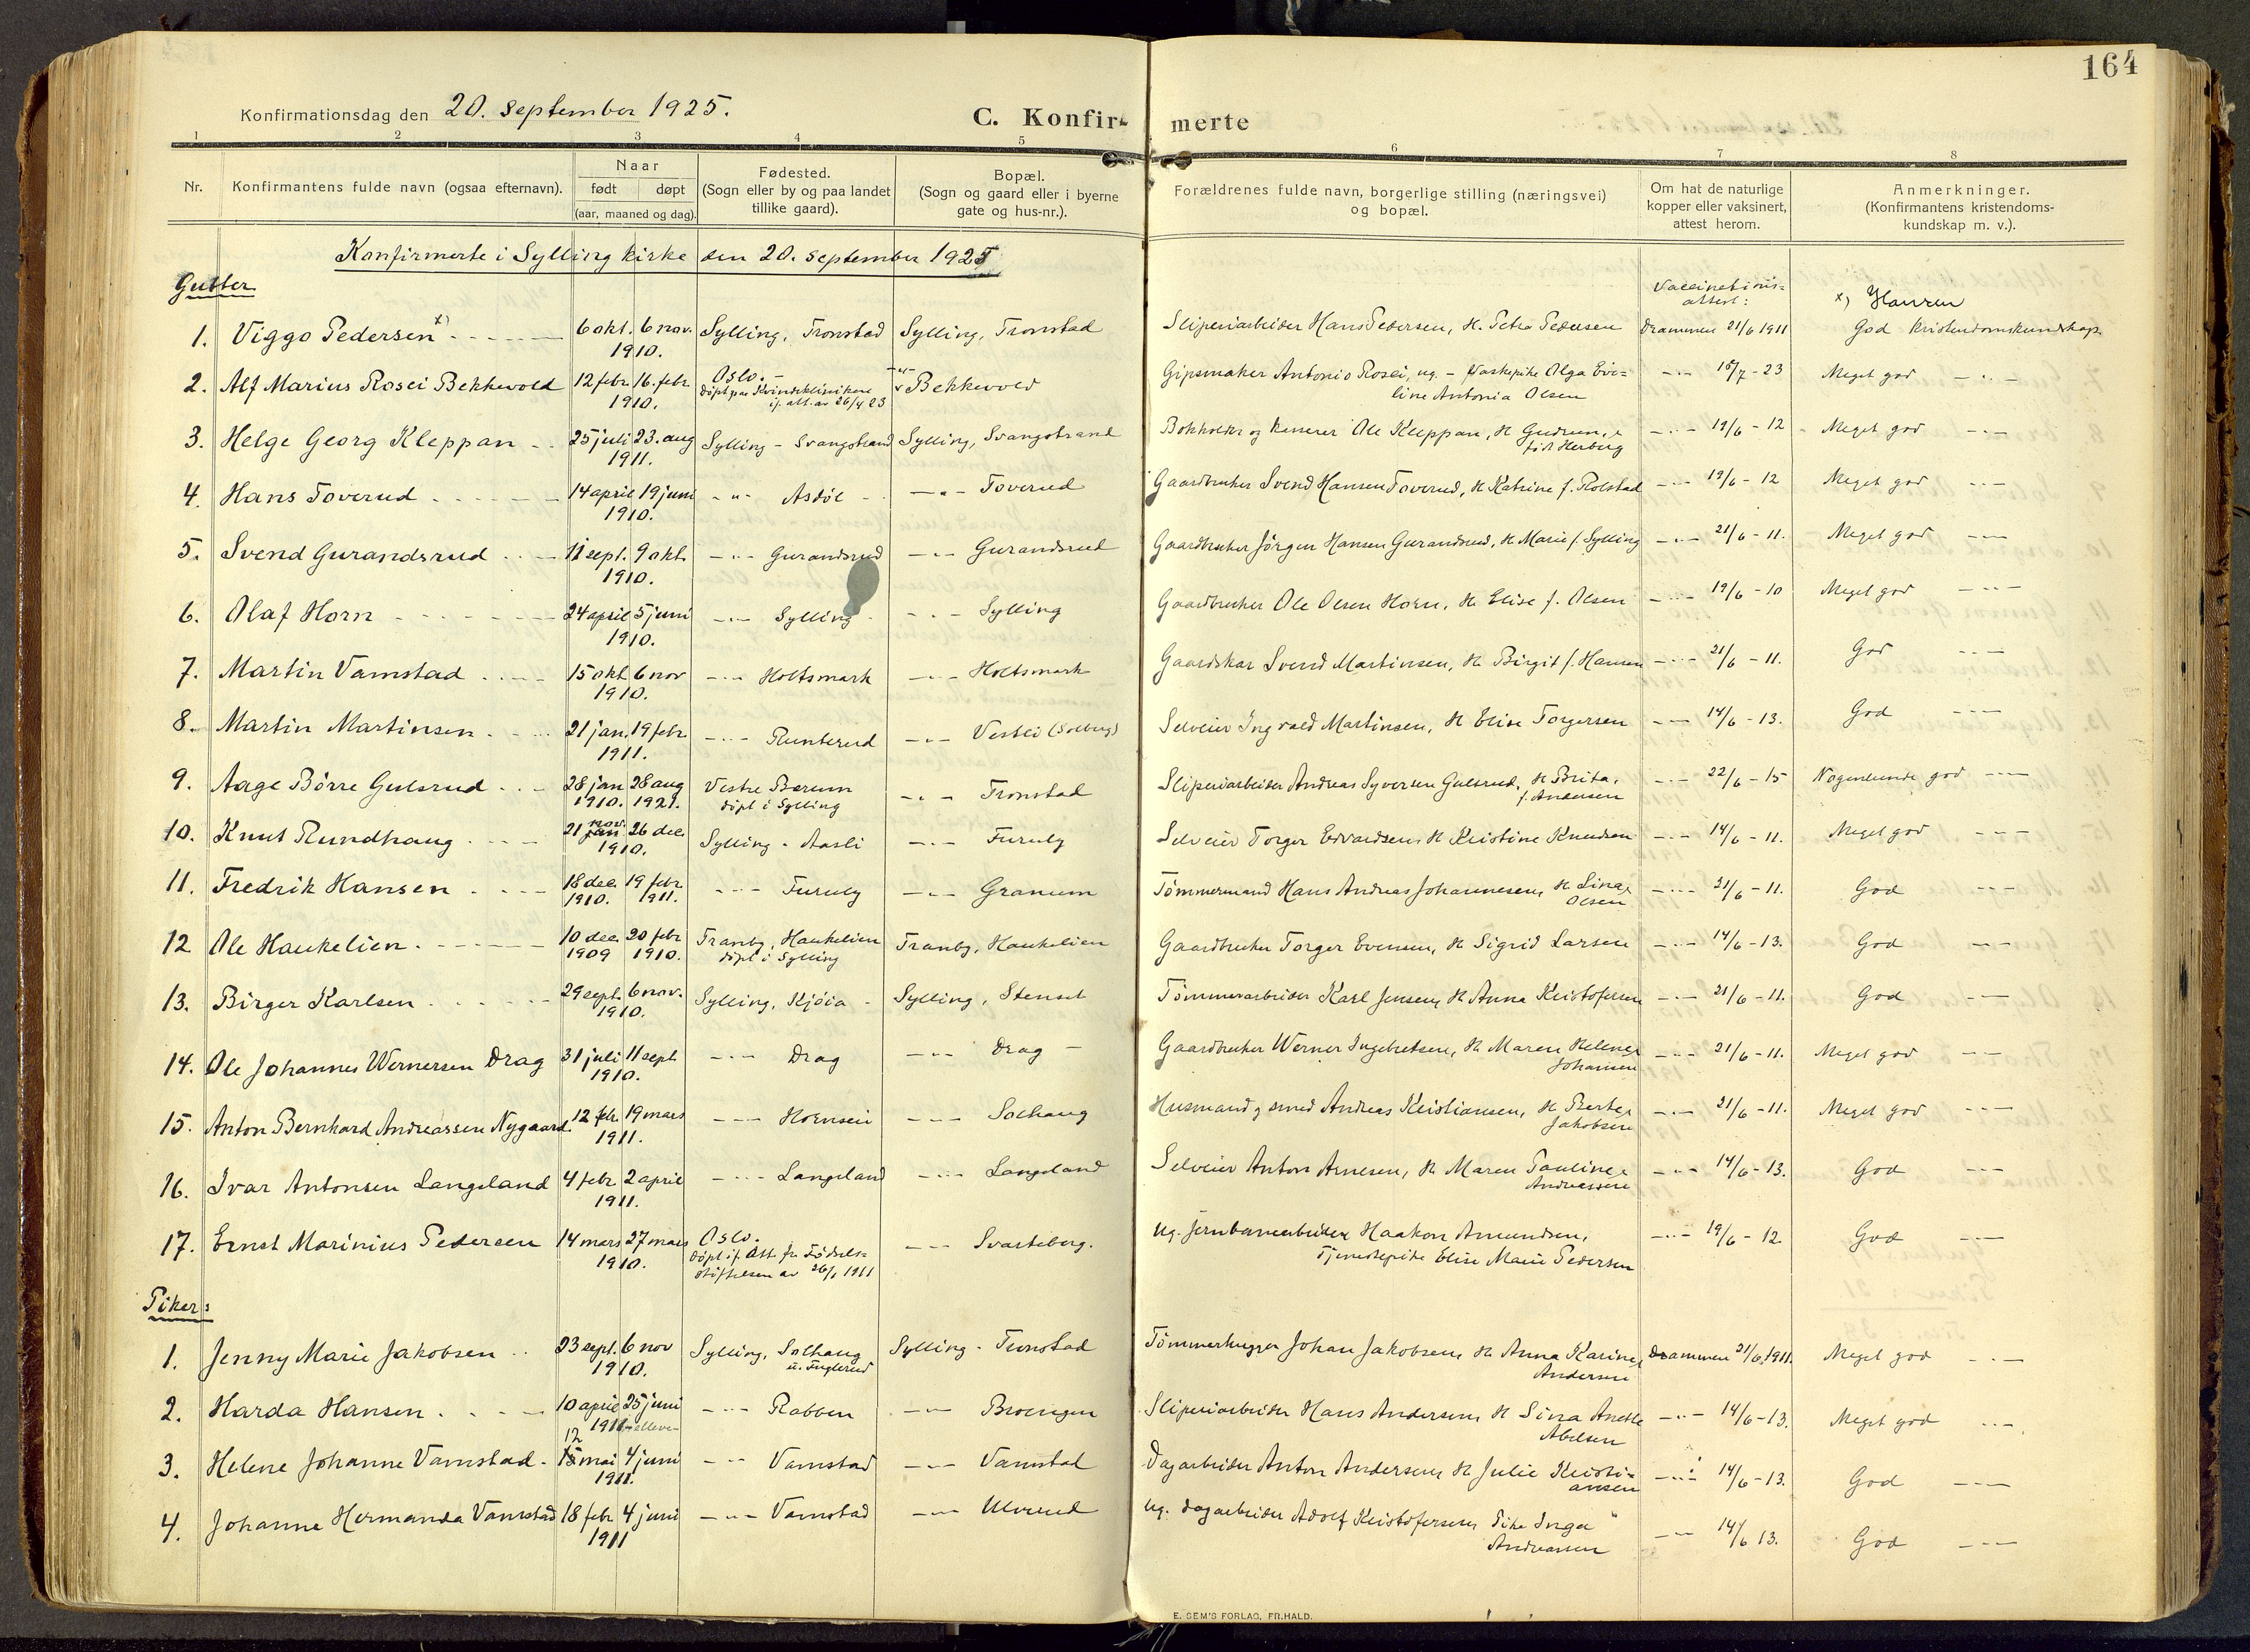 164
Konfirmationsdag den 20. september 1925.
C. Konfir- merte
1 2 3 4 5 6 7 8
Nr. Konfirmantens fulde navn (ogsaa efternavn). Naar født døpt (aar, maaned og dag). Fødested. (Sogn eller by og paa landet tillike gaard). Bopæl. (Sogn og gaard eller i byerne gate og hus-nr.). Forældrenes fulde navn, borgerlige stilling (næringsvei) og bopæl. Om hat de naturlige kopper eller vaksinert, attest herom. Anmerkninger. (Konfirmantens kristendoms-kundskap m. v.).
Konfirmerte i Sylling kirke den 20. september 1925
Gutter
Vaccinations-attest:
x) Hansen
1. Viggo Pedersen x) 6 okt. 6 nov. 1910. Sylling, Tronstad Sylling, Tronstad Sliperiarbeider Hans Pedersen, H. Petra Pedersen Drammen 21/6 1911 God kristendomskundskap.
2. Alf Marius Rosei Bekkevold 12 febr. 16. febr. 1910. Oslo. - døpt paa Kvindeklinikene if. att. av 26/4 23 -"- Bekkevold Gipsmaker Antonio Rosei, ug. - Vaskepike Olga Eveline Antonia Olsen -"- 18/7 - 23 Meget god -"-
3. Helge Georg Kleppan 25 juli 23. aug 1911. Sylling - Svangstrand Sylling, Svangstrand Bokholder og kasserer Ole Kleppan, H. Gudrun, født Herberg -"- 19/6 - 12 Meget god -"-
4. Hans Toverud 14 april 19 juni 1910. -"- Asdøl -"- Toverud Gaardbruker Svend Hansen Toverud, H. Katrine f. Rolstad -"- 19/6 - 12 Meget god -"-
5. Svend Gurandsrud 11 sept. 9 okt. 1910. -"- Gurandsrud -"- Gurandsrud Gaardbruker Jørgen Hansen Gurandsrud, H. Marie f. Sylling -"- 21/6 - 11. Meget god -"-
6. Olaf Horn 24 april 5 juni 1910. -"- Sylling -"- Sylling Gaardbruker Ole Olsen Horn, H. Elise f. Olsen -"- 19/6 - 10 Meget god -"-
7. Martin Vamstad 15 okt 6 nov 1910. -"- Holtsmark -"- Holtsmark Gaardskar Svend Martinsen, H. Birgit f. Hansen -"- 21/6 - 11. God -"-
8. Martin Martinsen 21 jan. 19 febr. 1911. -"- Runterud -"- Vestli (Solberg) Selveier Ingvald Martinsen, H. Elise Torgersen -"- 14/6 - 13. God -"-
9. Aage Børre Gulsrud 28 jan 1910. 28 aug 1921. Vestre Bærum døpt i Sylling -"- Tronstad Sliperiarbeider Andreas Syversen Gulsrud, H. Brita, f. Andersen -"- 22/6 - 15 Nogenlunde god -"-
10. Knut Rundhaug 21 jan nov. 26 dec 1910. Sylling - Aasli -"- Furuly Selveier Torger Edvardsen, H. Kristine Knudsen -"- 14/6 - 11. Meget god -"-
11. Fredrik Hansen 18 dec. 1910. 19 febr 1911. -"- Furuly -"- Granum Tømmermand Hans Andreas Johannesen, H. Lina Olsen -"- 21/6 - 11. God -"-
12 Ole Haukelien 10 dec. 1909 20 febr 1910. Tranby, Haukelien døpt i Sylling Tranby, Haukelien Gaardbruker Torger Evensen, H. Sigrid Larsen -"- 14/6 - 13. God -"-
13. Birger Karlsen 29 sept. 6 nov. 1910. Sylling, Kjøia Sylling, Stenset Tømmerarbeider Karl Jensen, H. Anna Kristofersen -"- 21/6 - 11. God -"-
14. Ole Johannes Wernersen Drag 31 juli 11 sept 1910. -"- Drag -"- Drag - Gaardbruker Werner Ingebretsen, H. Maren Helene Johansen -"- 21/6 - 11. Meget god -"-
15. Anton Bernhard Andreassen Nygaard 12 feb. 19 mars 1911. -"- Hornsei -"- Solhaug Husmand og smed Andreas Kristiansen, H. Berte Jakobsen -"- 21/6 - 11. Meget god -"-
16. Ivar Antonsen Langeland 4 febr 2 april 1911. -"- Langeland -"- Langeland Selveier Anton Arnesen, H. Maren Pauline Andreassen -"- 14/6 - 13. God -"-
17. Ernst Marinius Pedersen 14 mars 27 mars 1910. Oslo. Døpt if. Att. fr. Fødsels-stiftelsen av 26/1 1911 -"- Svarteberg. ug. jernbanearbeider Haakon Amundsen, Tjenestepike Elise Marie Pedersen -"- 19/6 - 12 God -"-
Piker:
1. Jenny Marie Jakobsen 23 sept. 6 nov 1910. Sylling, Solhaug u. Fuglerud Sylling - Tronstad Tømmerhugger Johan Jakobsen, H. Anna Karine Andersen Drammen 21/6 1911. Meget god -"-
2. Harda Hansen 10 april 25 juni 1911 -elleve- -"- Rabben -"- Broengen Sliperiarbeider Hans Andersen, H. Lina Anette Abelsen -"- 14/6 - 13. Meget god -"-
3. Helene Johanne Vamstad 12 mai 4 juni 1911. -"- Vamstad -"- Vamstad Dagarbeider Anton Andersen, H. Julie Kristiansen -"- 14/6 - 13. God -"-
4. Johanne Hermanda Vamstad 18 febr. 4 juni 1911 -"- Vamstad -"- Ulverud ug. dagarbeider Adolf Kristofersen, Pike Inga Andreassen -"- 14/6 13. God -"-
E. SEM'S FORLAG, FR.HALD.